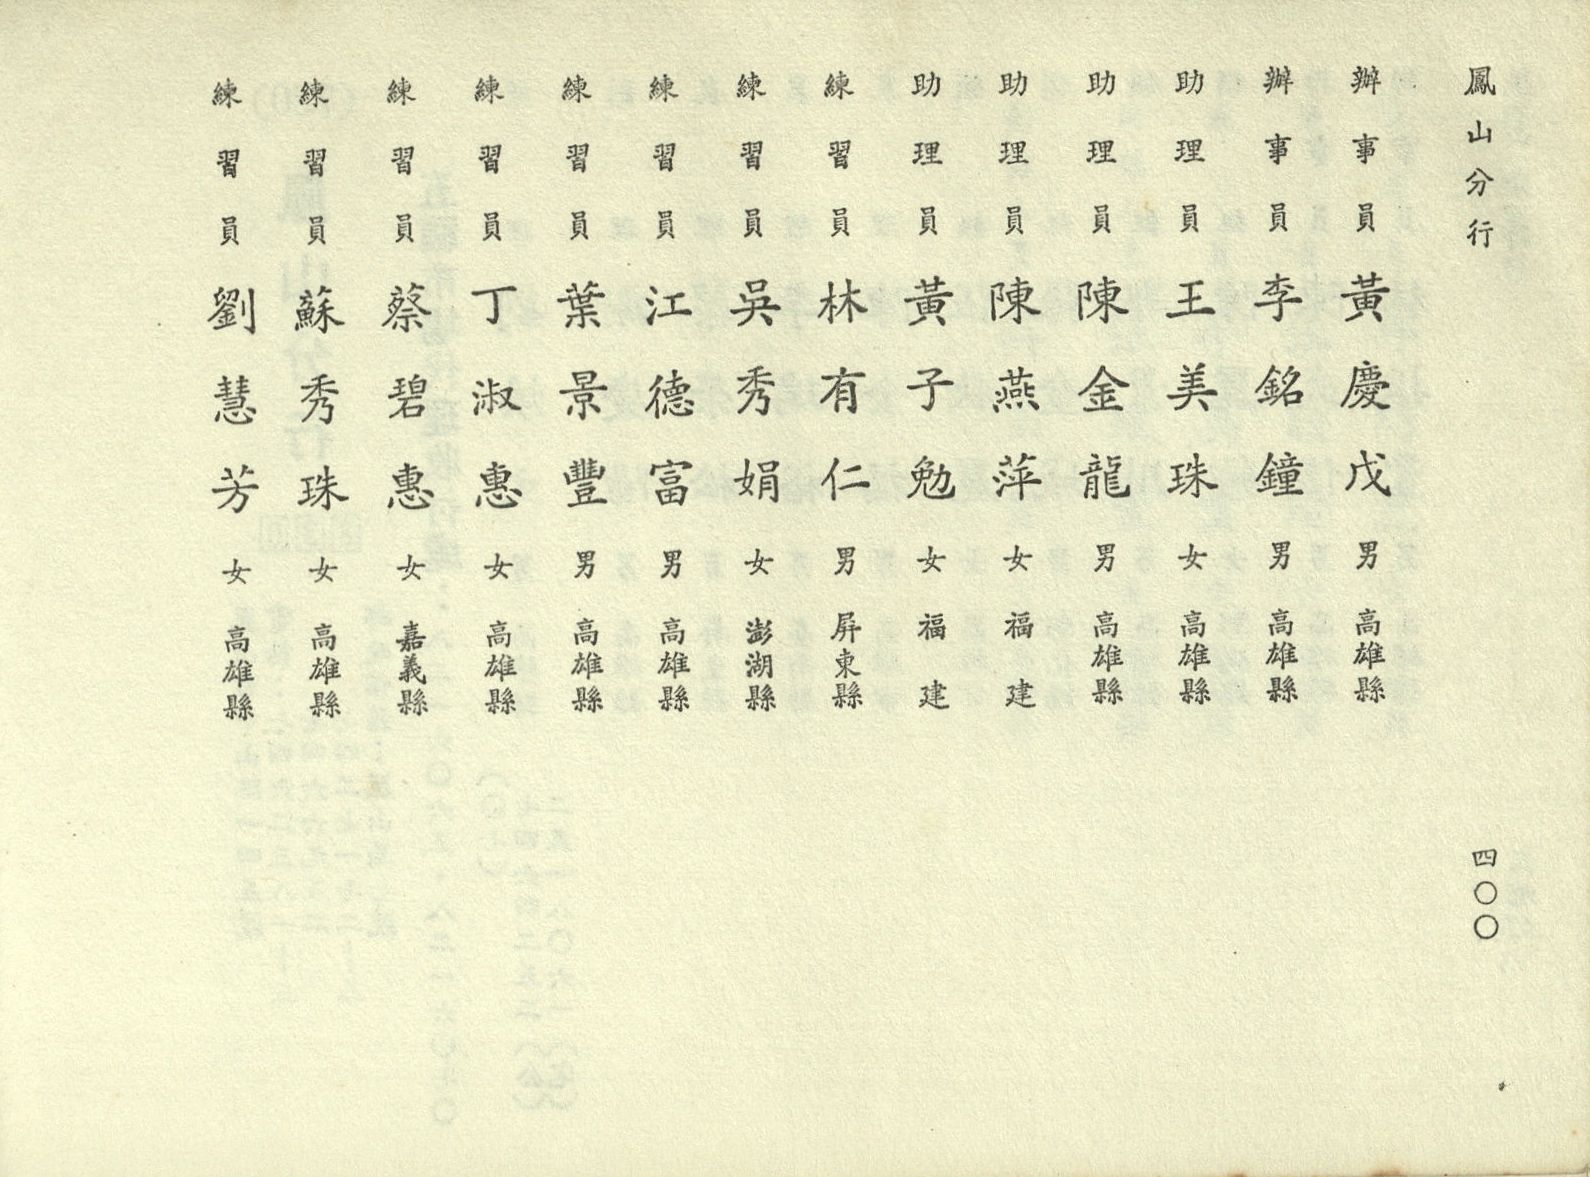 鳳山分行
四〇〇
辦事員 黃慶戊 男 高雄縣
辦事員 李銘鐘 男 高雄縣
助理員 王美珠 女 高雄縣
助理員 陳金龍 男 高雄縣
助理員 陳燕萍 女 福建
助理員 黃子勉 女 福建
練習員 林有仁 男 屏東縣
練習員 吳秀娟 女 澎湖縣
練習員 江德富 男 高雄縣
練習員 葉景豐 男 高雄縣
練習員 丁淑惠 女 高雄縣
練習員 蔡碧惠 女 嘉義縣
練習員 蘇秀珠 女 高雄縣
練習員 劉慧芳 女 高雄縣